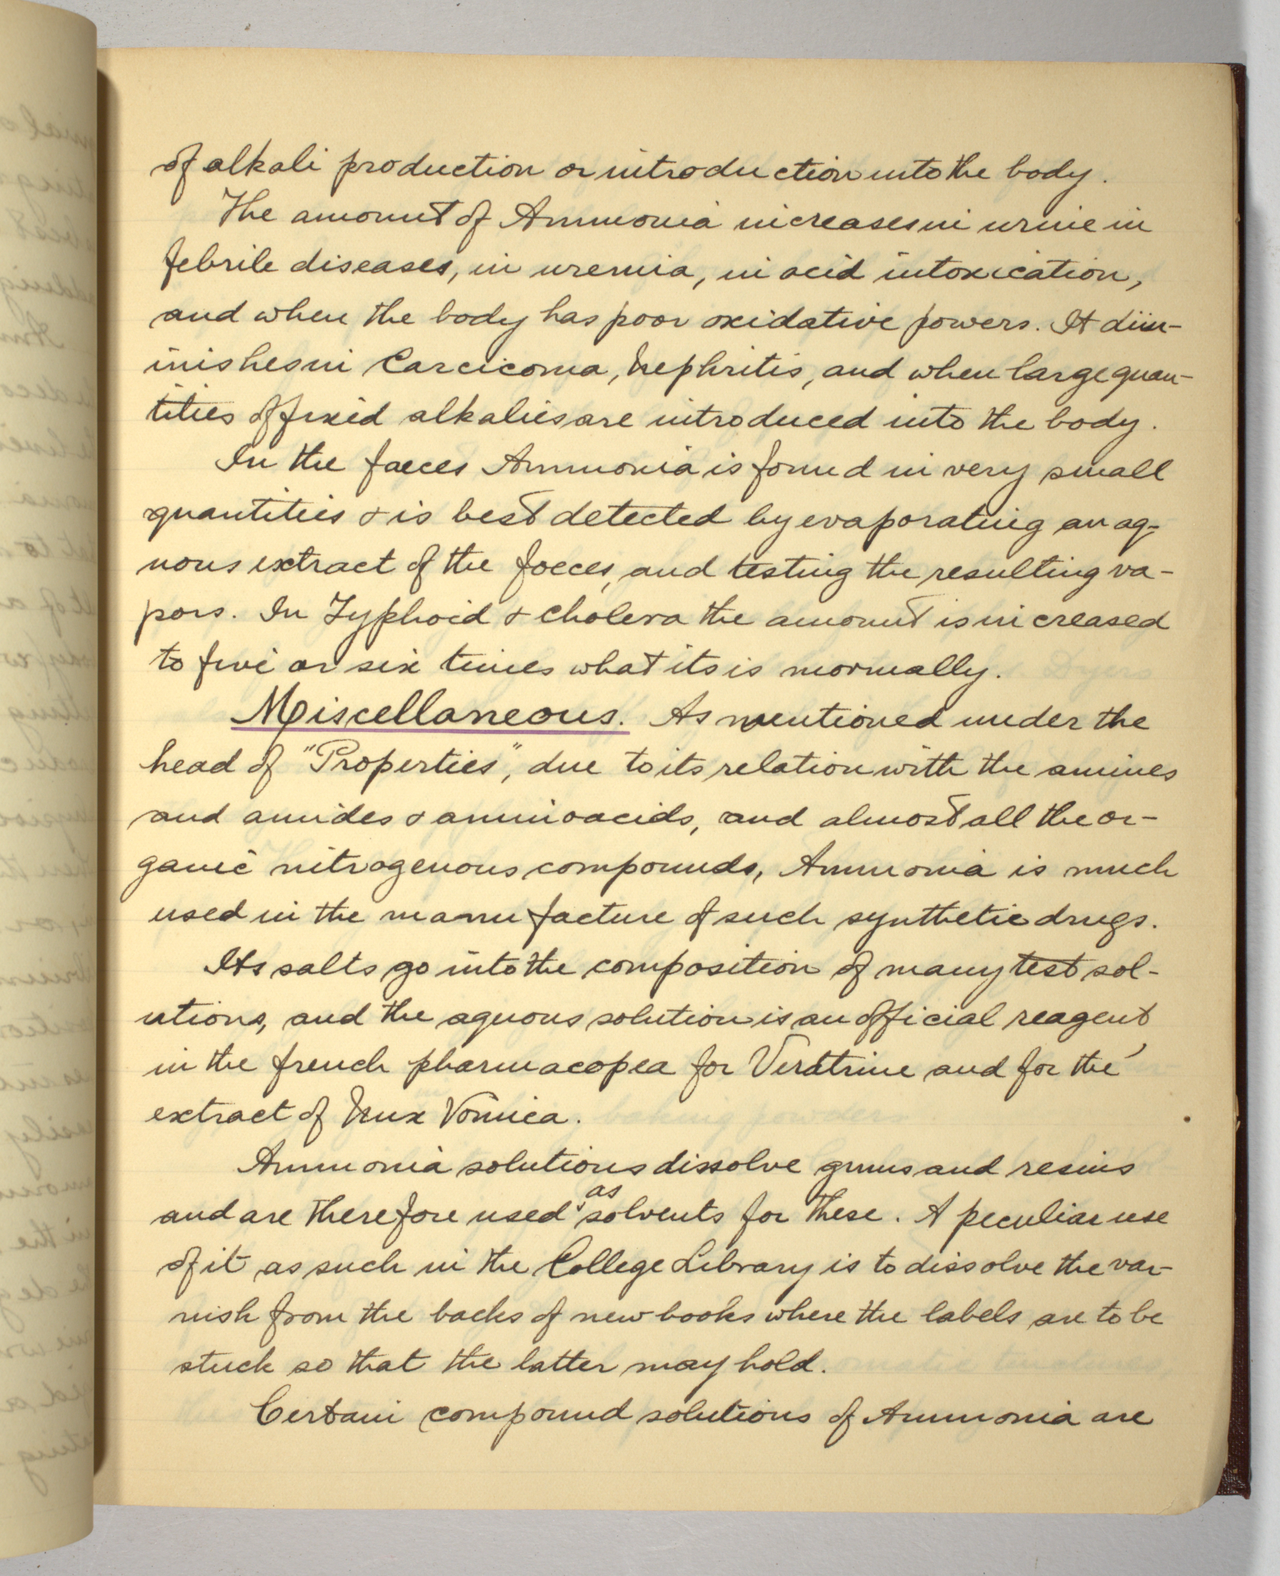 of alkali production or introduction into the body.
The amount of Ammonia increases in urine in
febrile diseases, in uremia, in acid intoxication,
and when the body has poor oxidative powers. It dim-
inishes in Carcicoma, Nephritis, and when large quan-
tities of fixed alkalies are introduced into the body.
In the faeces Ammonia is found in very small
quantities & is best detected by evaporating an aq-
uous extract of the foeces, and testing the resulting va-
pors. In Typhoid & cholera the amount is increased
to five or six times what its is normally.
Miscellaneous. As mentioned under the
head of "Properties", due to its relation with the amines
and amides & aminoacids, and almost all the or-
ganic nitrogenous compounds, Ammonia is much
used in the manufacture of such synthetic drugs.
Its salts go into the composition of many test sol-
utions, and the aquous solution is an official reagent
in the french pharmacopea for Veratrine and for the
extract of Nux Vomica.
Ammonia solutions dissolve gums and resins
and are therefore used as solvents for these. A peculiar use
of it as such in the College Library is to dissolve the var-
nish from the backs of new books where the labels are to be
stuck so that the latter may hold.
Certain compound solutions of Ammonia are